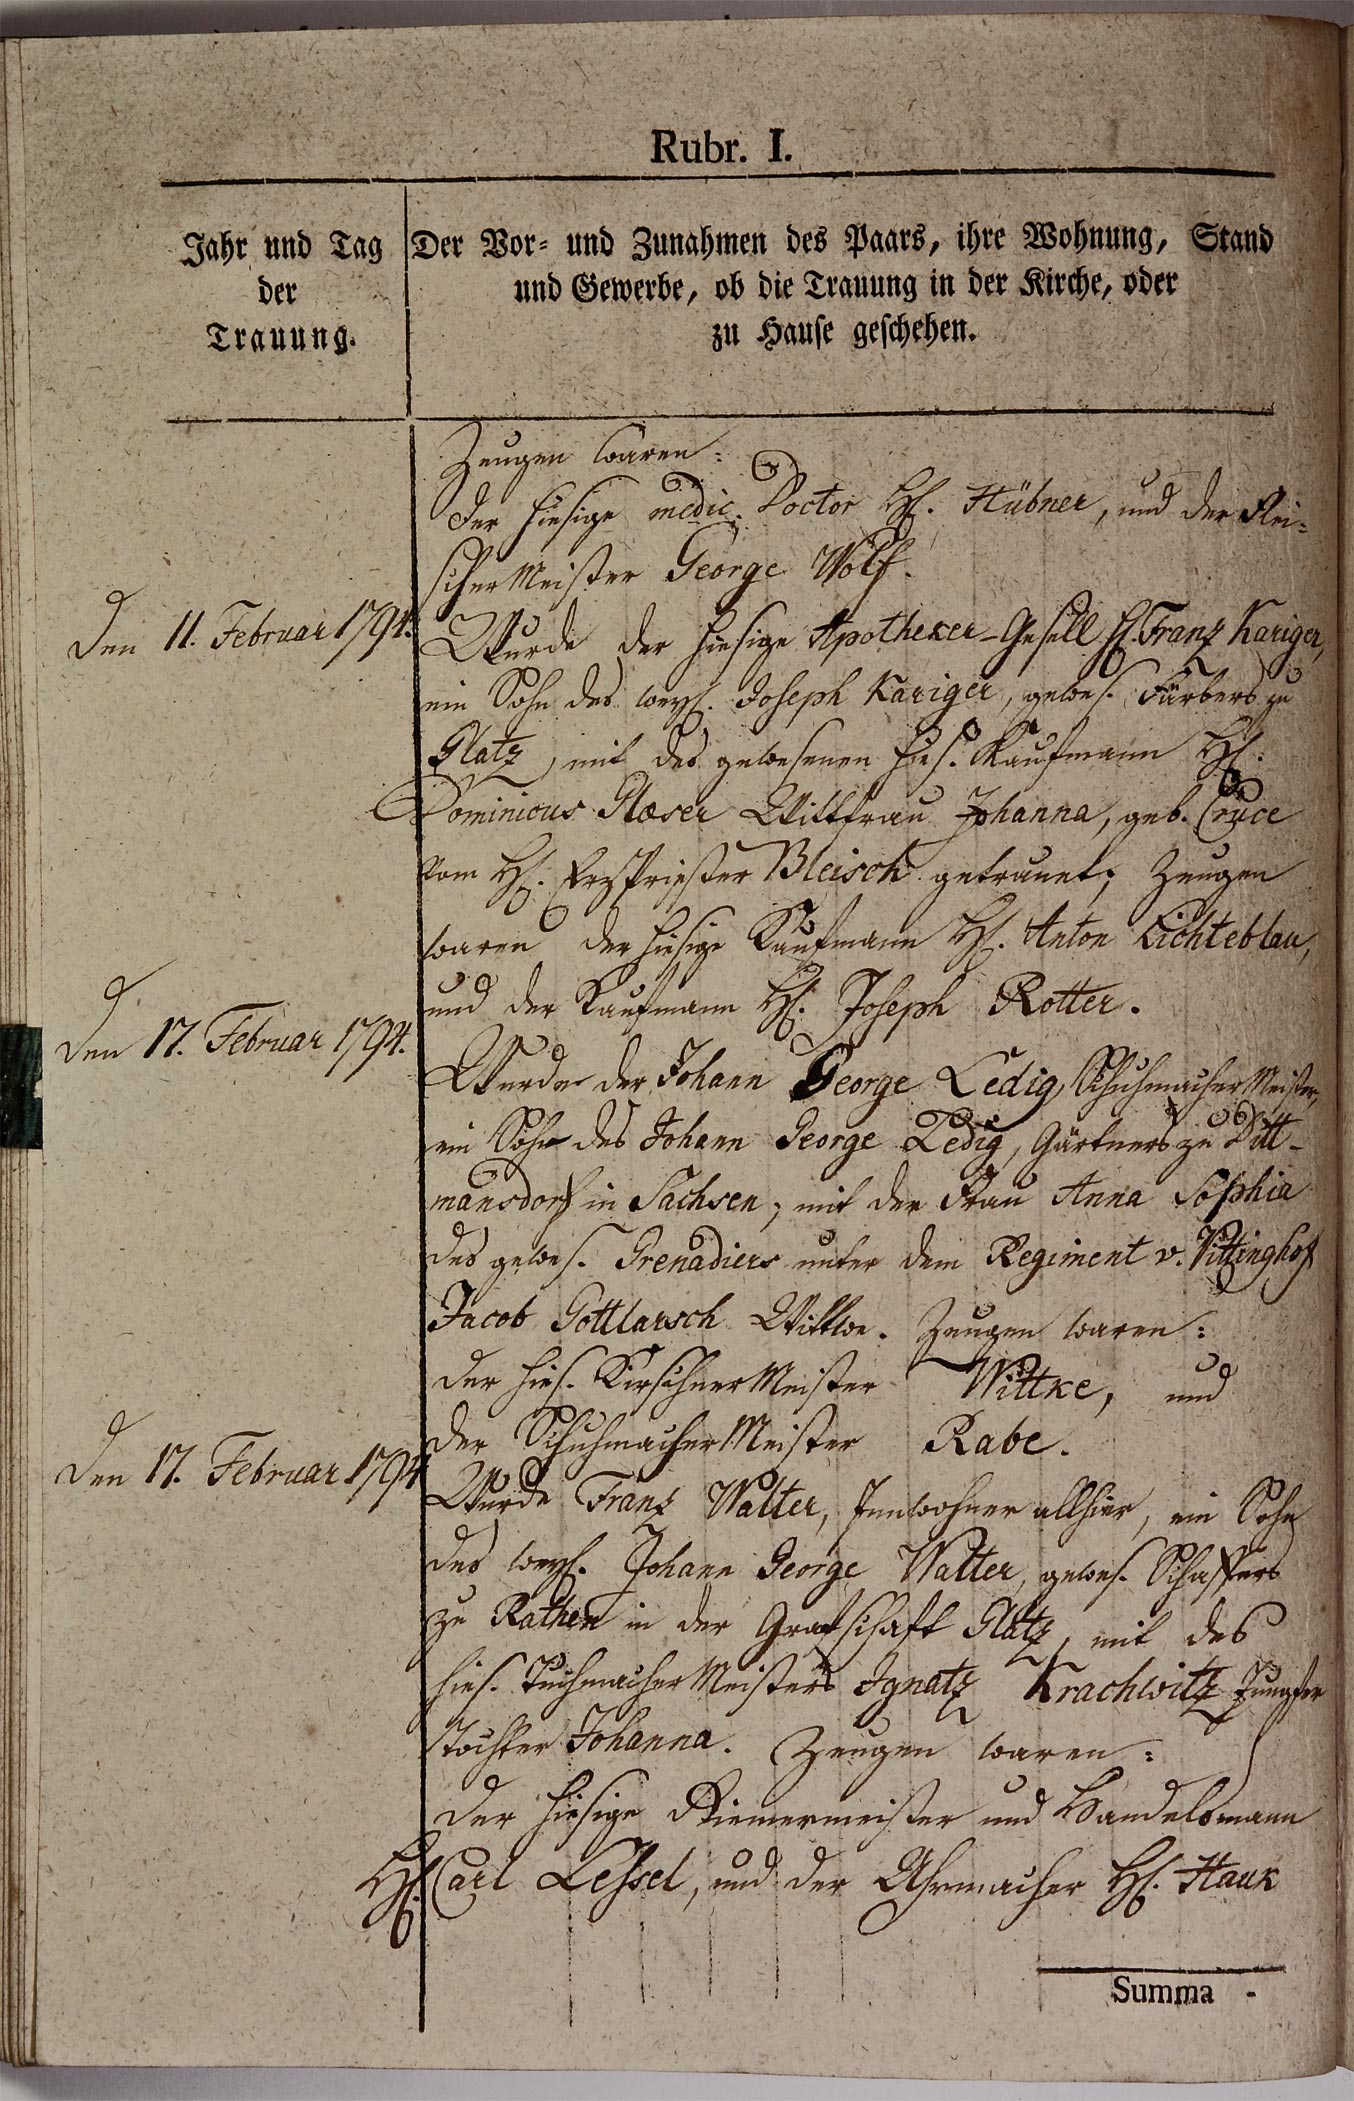 Rubr. I.
Jahr und Tag
der
Trauung.
Der Vor- und Zunahmen des Paars, ihre Wohnung, Stand
und Gewerbe, ob die Trauung in der Kirche, oder
zu Hause geschehen.
Zeugen waren:
der hiesige medic. Doctor H. Hübner, und der Flei-
scher Meister George Wolf.
Den 11. Februar 1794.
Wurde der hiesige Apotheker-Gesell H. Franz Kariger,
ein Sohn des weyl. Joseph Kariger, gewes. Färbers zu
Glatz, mit des gewesenen hies. Kaufmann H.
Dominicus Glaeser Wittfrau Johanna, geb. Cruce
vom H. Erzpriester Bleisch getrauet; Zeugen
waren der hiesige Kaufmann H. Anton Lichteblau,
und der Kaufmann H. Joseph Rotter.
Den 17. Februar 1794.
Wurde der Johann George Ledig, Schuhmacher Meister,
ein Sohn des Johann George Ledig, Gärtners zu Ditt-
mansdorf in Sachsen, mit der Frau Anna Sophia
des gewes. Grenadiers unter dem Regiment v. Vittinghof
Jacob Gottlarsch Wittwe. Zeugen waren:
der hies. Kirschner Meister Wittke, und
der Schuhmacher Meister Rabe.
Den 17. Februar 1794
Wurde Franz Walter, Innwohner allhier, ein Sohn
des weyl. Johann George Walter, gewes. Schaffers
zu Rathen in der Grafschaft Glatz, mit des
hies. Tuchmacher Meisters Ignatz Krachwitz Jungfer
Tochter Johanna. Zeugen waren:
der hiesige Riemermeister und Handelsmann
H. Carl Lessel, und der Uhrmacher H. Hauk
Summa -